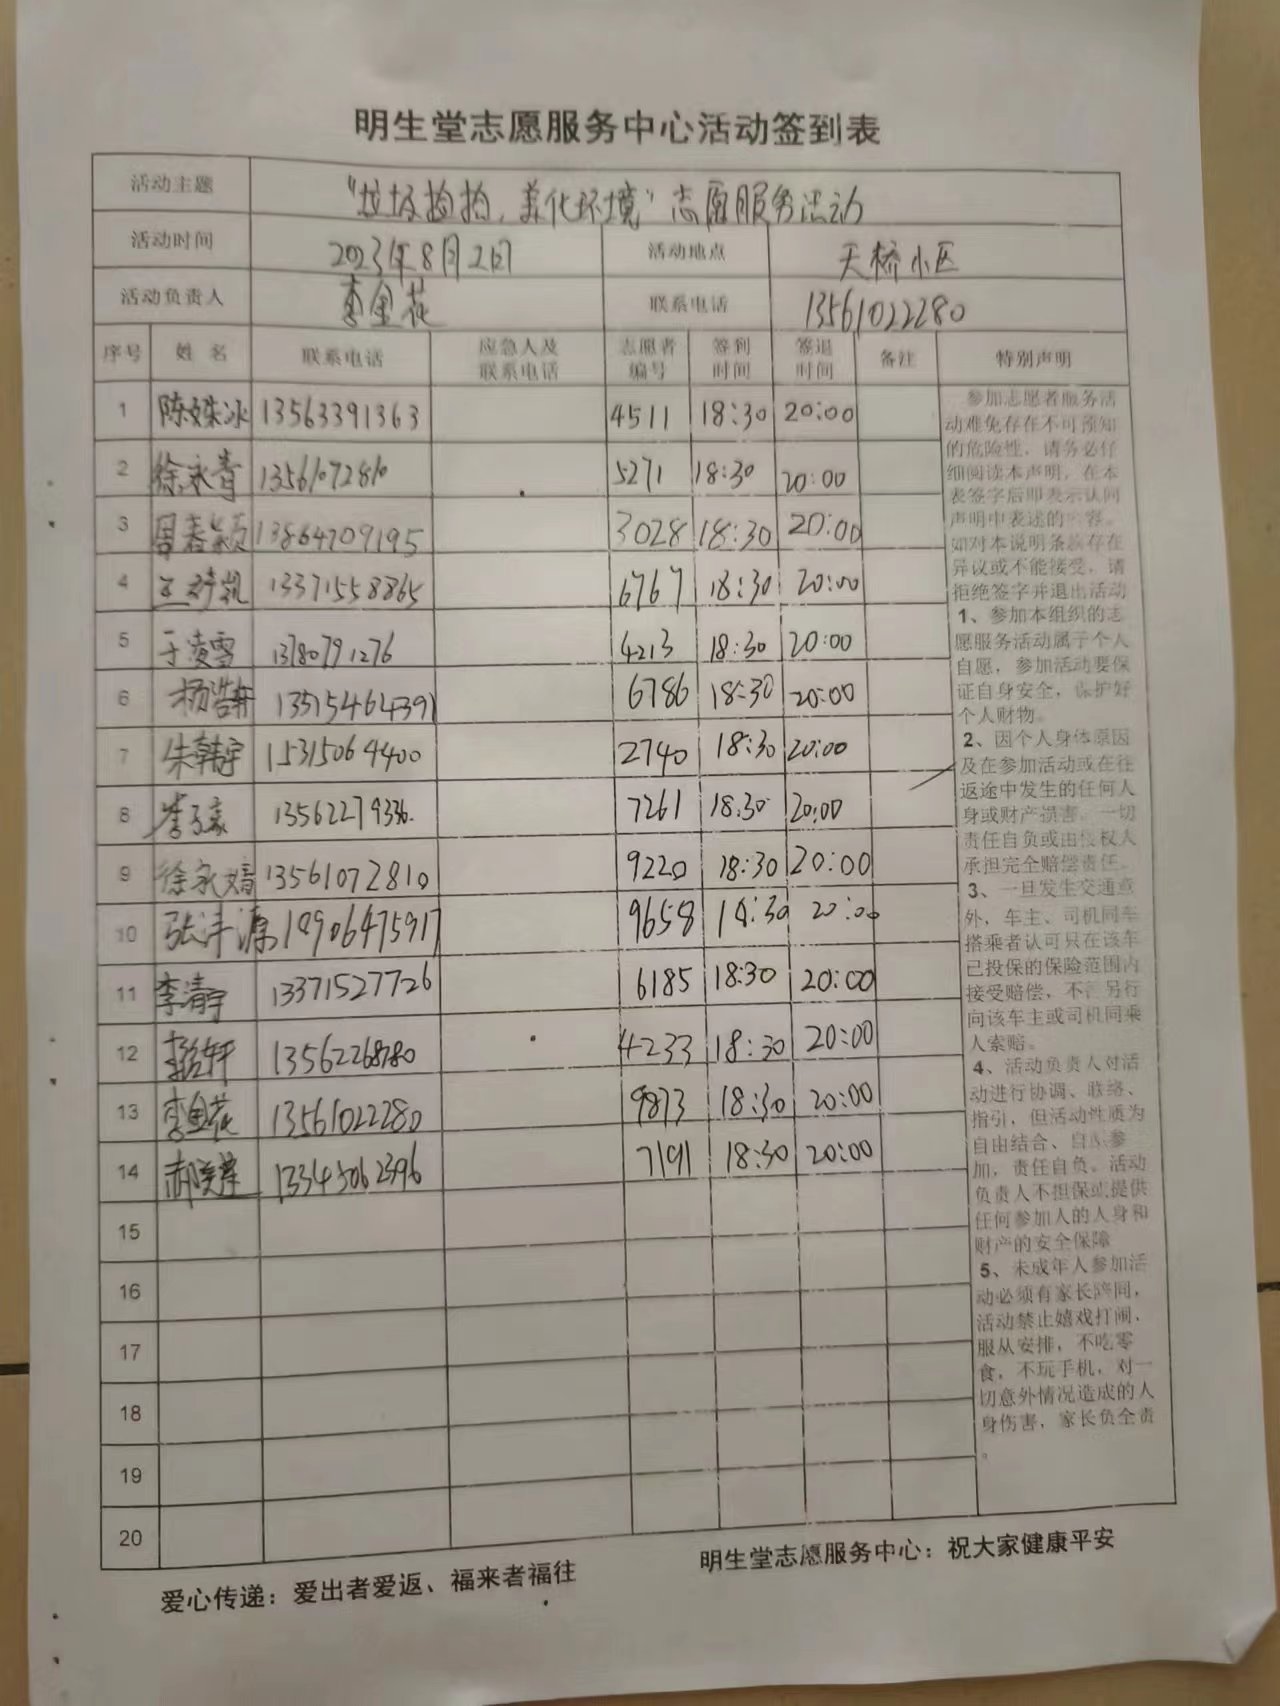 明生堂志愿服务中心活动签到表
活动主题 "垃圾捡捡，美化环境"志愿服务活动
活动时间 2023年8月2日 活动地点 天桥小区
活动负责人 李金花 联系电话 13561022280
序号 姓名 联系电话 应急人及联系电话 志愿者编号 签到时间 签退时间 备注 特别声明
1 陈姝冰 13563391363 4511 18:30 20:00
2 徐永青 13561072810 5271 18:30 20:00
3 周春颖 13864709195 3028 18:30 20:00
4 13371558865 6767 18:30 20:00
5 于凌雪 13780791276 4213 18:30 20:00
6 杨浩轩 13515464391 6786 18:30 20:00
7 朱韩宇 15315064400 2740 18:30 20:00
8 13562279336. 7261 18:30 20:00
9 徐永嫱 13561072810 9220 18:30 20:00
10 张沣源 18906475917 9658 18:30 20:00
11 李清宇 13371527726 6185 18:30 20:00
12 13562268780 4233 18:30 20:00
13 李金花 13561022280 9873 18:30 20:00
14 13345062396 7191 18:30 20:00
15
16
17
18
19
20
参加志愿者服务活
动难免存在不可预知
的危险性，请务必仔
细阅读本声明，在本
表签字后即表示认同
声明中表述的内容。
如对本说明条款存在
异议或不能接受，请
拒绝签字并退出活动
1、参加本组织的志
愿服务活动属于个人
自愿，参加活动要保
证自身安全，保护好
个人财物。
2、因个人身体原因
及在参加活动或在往
返途中发生的任何人
身或财产损害。一切
责任自负或由侵权人
承担完全赔偿责任。
3、一旦发生交通意
外，车主、司机同车
搭乘者认可只在该车
已投保的保险范围内
接受赔偿，不得另行
向该车主或司机同乘
人索赔。
4、活动负责人对活
动进行协调、联络、
指引，但活动性质为
自由结合、自愿参
加，责任自负。活动
负责人不担保或提供
任何参加人的人身和
财产的安全保障
5、未成年人参加活
动必须有家长陪同，
活动禁止嬉戏打闹，
服从安排，不吃零
食，不玩手机，对一
切意外情况造成的人
身伤害，家长负全责
。
爱心传递：爱出者爱返、福来者福往
明生堂志愿服务中心：祝大家健康平安